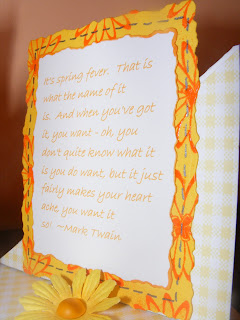 It's spring fever.  That is
what the name of it
is.  And when you've got
it, you want - oh, you
don't quite know what it
is you do want, but it just
fairly makes your heart
ache, you want it
so!  ~Mark Twain